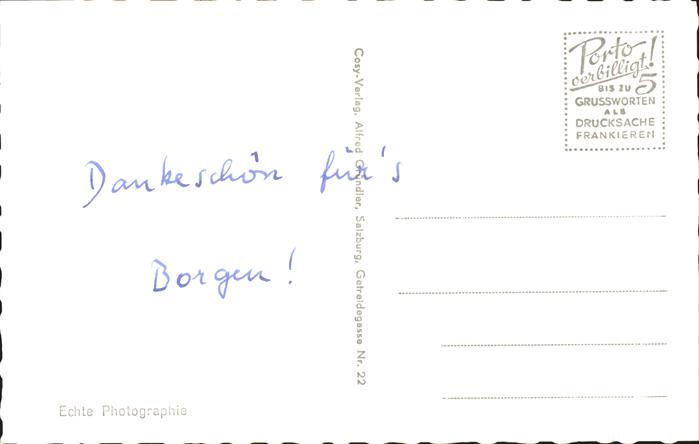 Porto
verbilligt!
BIS ZU 5
GRUSSWORTEN
ALS
DRUCKSACHE
FRANKIEREN
Dankeschön für's
Borgen!
Cosy-Verlag, Alfred Gründler, Salzburg, Getreidegasse Nr. 22
Echte Photographie